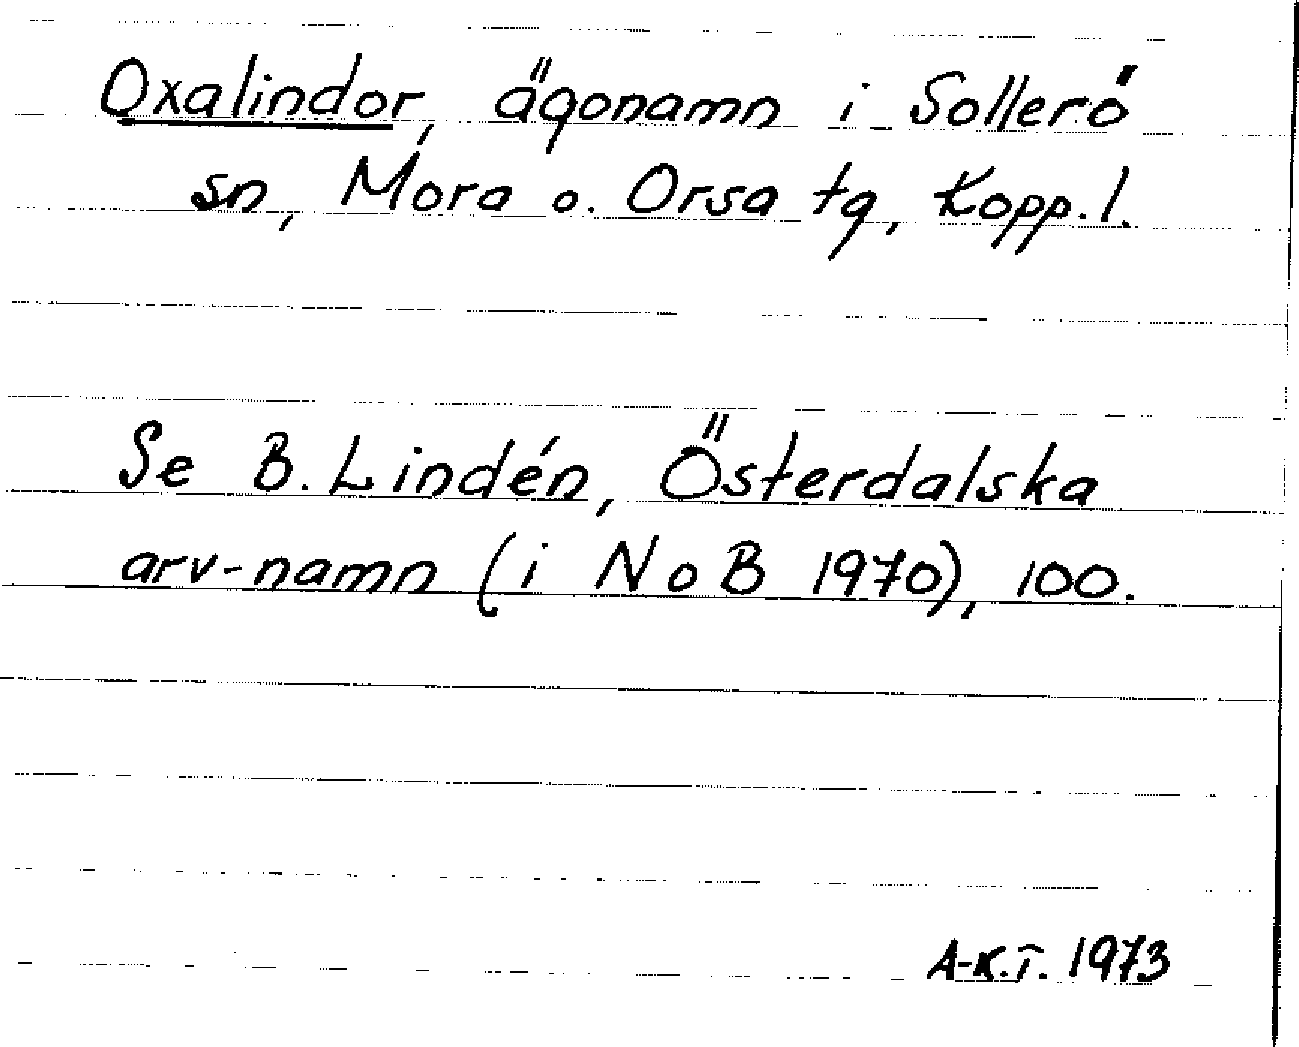 Oxalindor, ägonamn i Sollerö
sn, Mora o. Orsa tg, Kopp. l.
Se B. Lindén, Österdalska
arv-namn (i NoB 1970), 100.
A-K.T. 1973